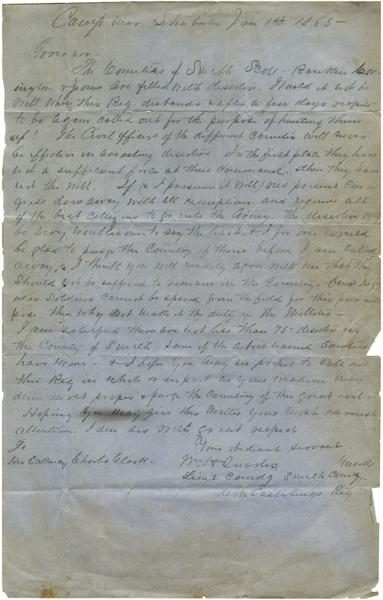 Camp near Shubuta Jan 1st 1865 -
Governor
The Counties of Smith Scott - Rankin Cov-
ington & Jones are filled with deserters. Would it not be
well when this Reg. disbands & after a few days respite
to be again called out for the purpose of hunting them
up? The Civil officers of the different Counties will never
be effective in arresting deserters. In the first place they have
not a sufficient force at their command & then they have
not the will. If as I presume it will, our present Con-
gress does away with all exemptions and requires all
of the best citizens to go into the Army. The deserters will
be very troublesome to say the least, & I for one would
be glad to purge the Country of them before I am called
away, & I think you will readily agree with me that they
should not be suffered to remain in the Country.
also Soldiers cannot be spared from the field for this pur-
pose, then why not make it the duty of the Militia -
I am satisfied there are not less than 75 deserters in
the County of Smith some of the above named Counties
have more - & I hope you may see proper to call out
this Reg in whole or in part as your wisdom may
deem most proper & purge the Country of this great evil -
Hoping you may give this matter your most earnest
attention I am sir with great respect
Your obedient servant
To
His Excellency Charles Clark -
Wm H
Lieut Comdg Smith County
Regt